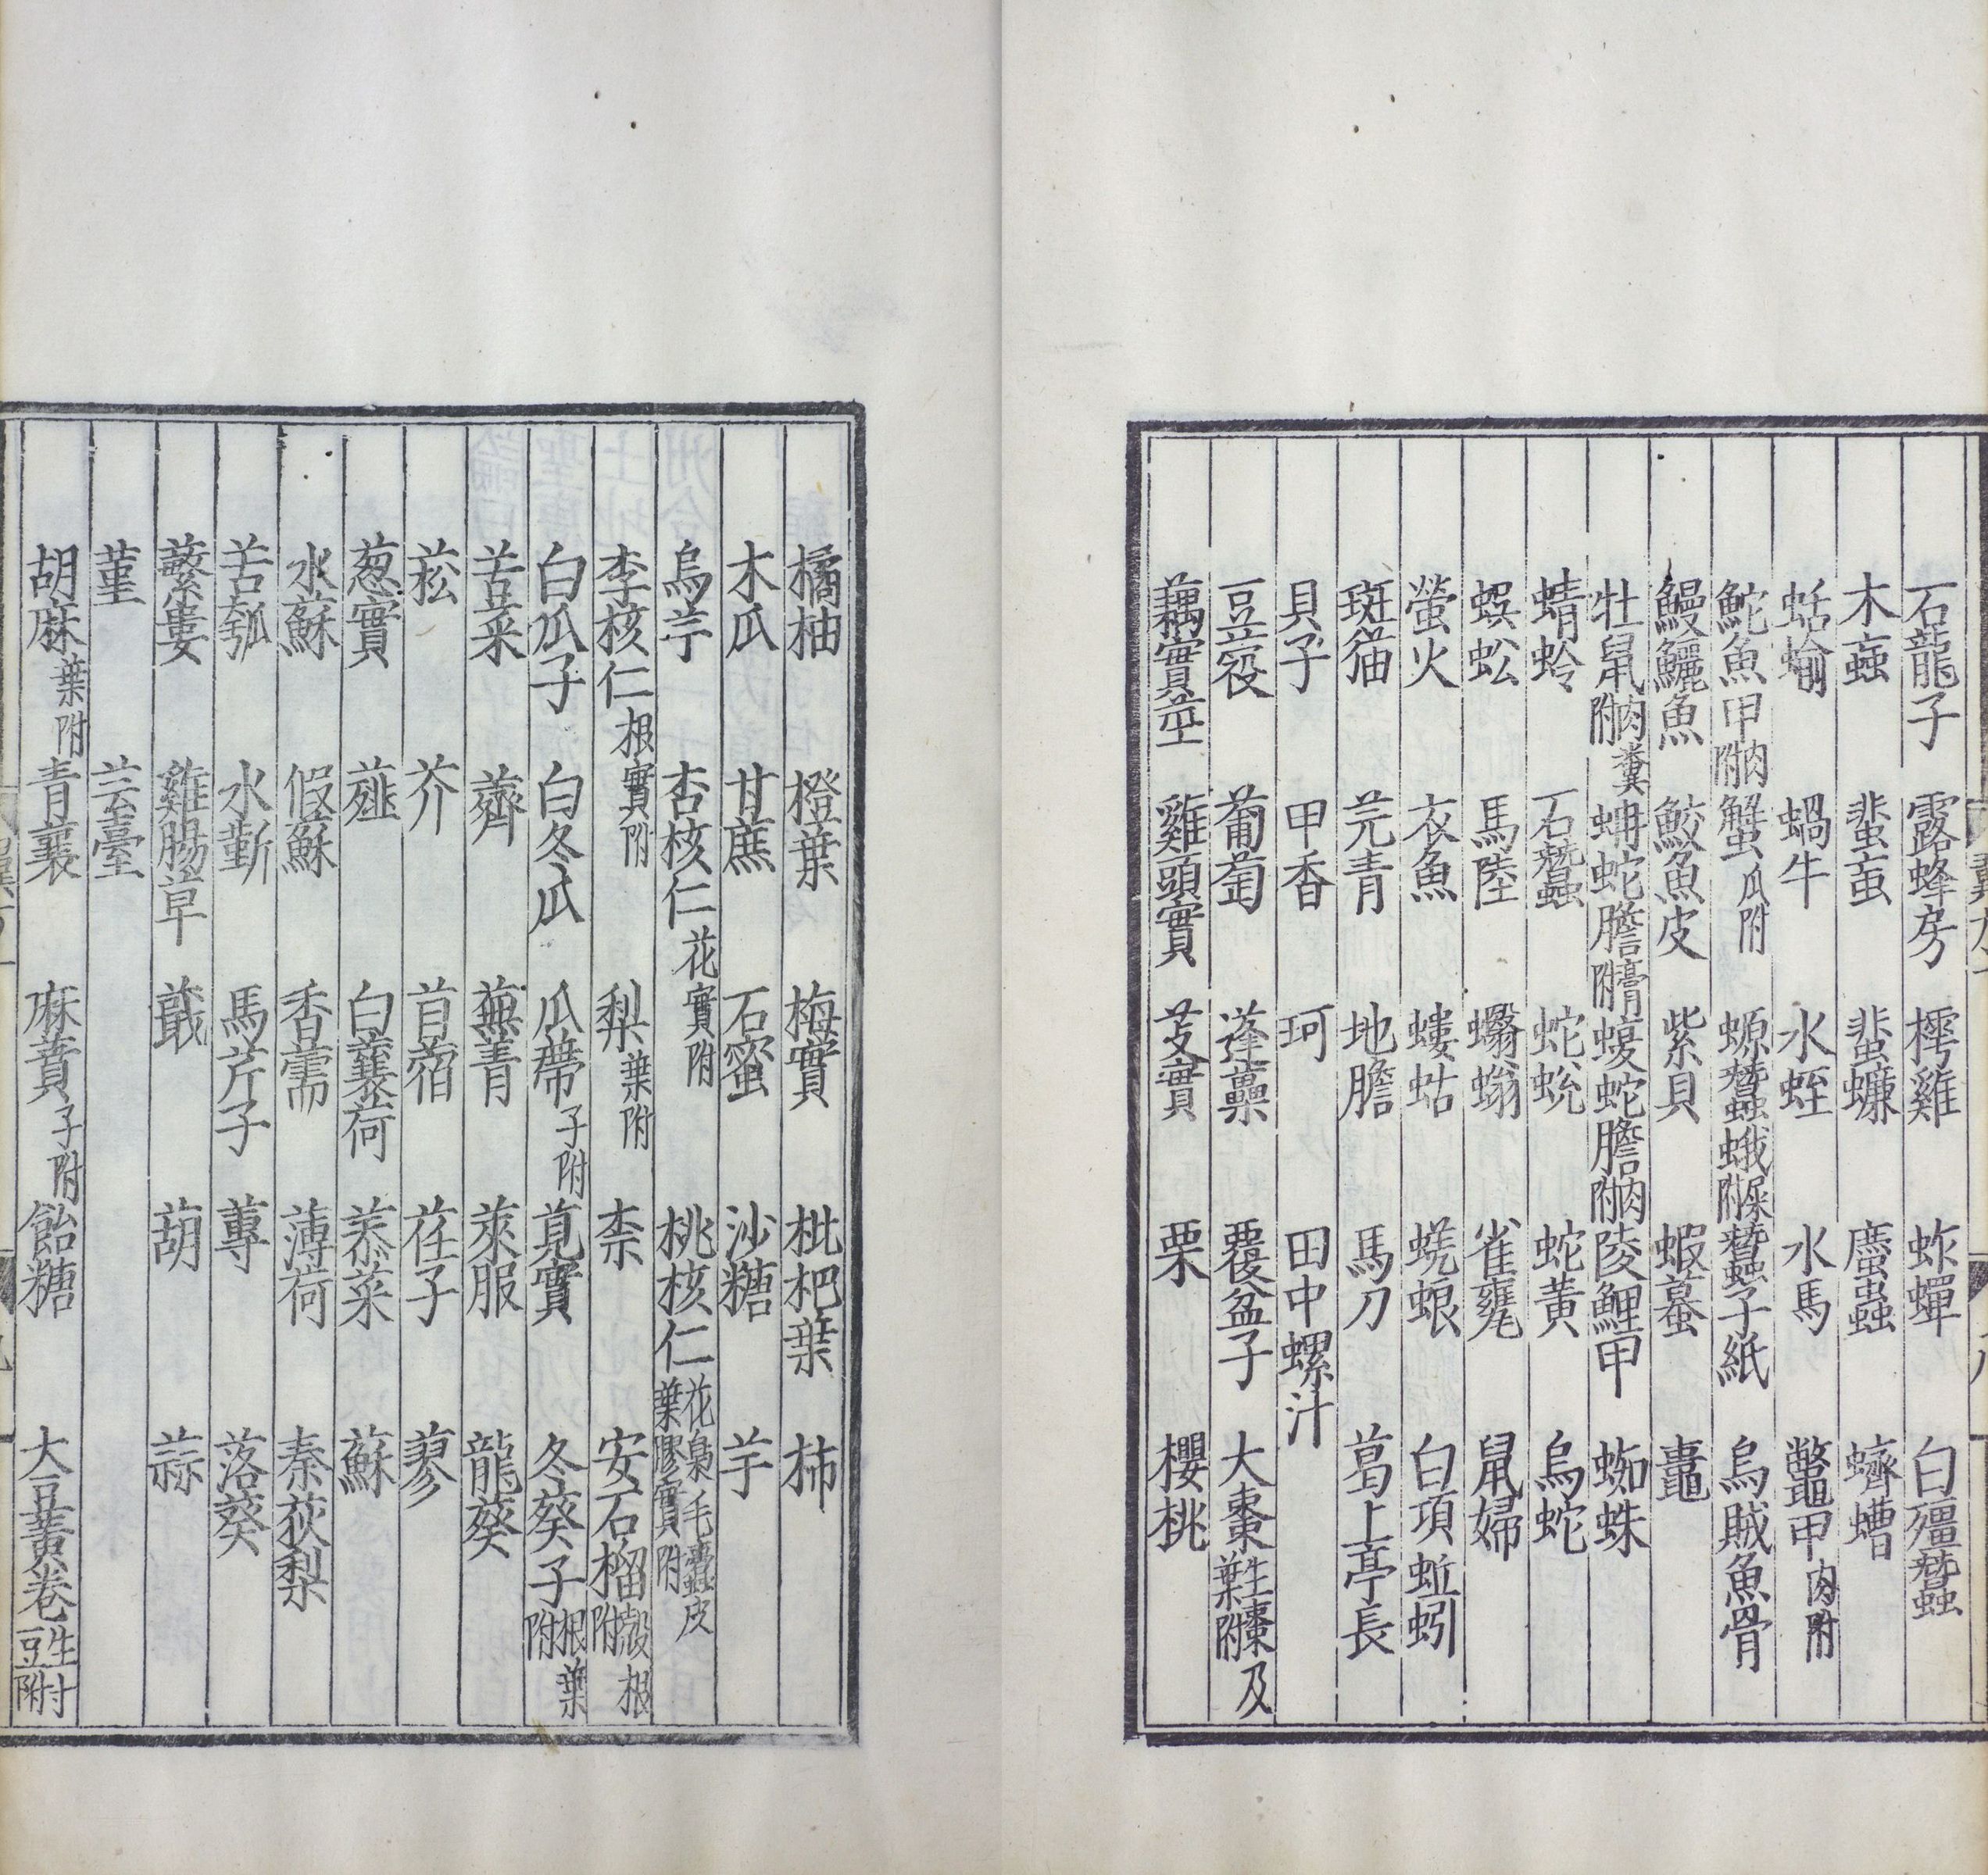 石龍子 露蜂房 樗雞 蚱蟬 白殭蠶
木蝱 蜚蝱 蜚蠊 䗪蟲 蠐螬
蛞蝓 蝸牛 水蛭 水馬 鼈甲肉附
鮀魚甲肉附 蟹爪附 螈蠶蛾屎附 蠶子紙 烏賊魚骨
鰻鱺魚 鮫魚皮 紫貝 蝦蟇 鼃
牡鼠肉糞附 蚺蛇膽膏附 蝮蛇膽肉附 陵鯉甲 蜘蛛
蜻蛉 石蠶 蛇蛻 蛇黃 烏蛇
蜈蚣 馬陸 蠮螉 雀甕 鼠婦
螢火 衣魚 螻蛄 蜣蜋 白頸蚯蚓
斑猫 芫青 地膽 馬刀 葛上亭長
貝子 甲香 珂 田中螺汁
豆蔻 葡萄 蓬虆 覆盆子 大棗生棗及葉附
藕實莖 雞頭實 芰實 栗 櫻桃
橘柚 橙葉 梅實 枇杷葉 柿
木瓜 甘蔗 石蜜 沙糖 芋
烏芋 杏核仁花實附 桃核仁花梟毛蠹皮葉膠實附
李核仁根實附 梨葉附 柰 安石榴殼根附
白瓜子 白冬瓜 瓜蔕子附 莧實 冬葵子根葉附
苦菜 薺 蕪菁 萊服 龍葵
菘 芥 苜蓿 荏子 蓼
葱實 薤 白蘘荷 菾菜 蘇
水蘇 假蘇 香薷 薄荷 秦荻梨
苦瓠 水蘄 馬芹子 蓴 落葵
蘩蔞 雞腸草 蕺 葫 蒜
堇 芸臺
胡麻葉附 青蘘 麻蕡子附 飴糖 大豆黃卷生豆附